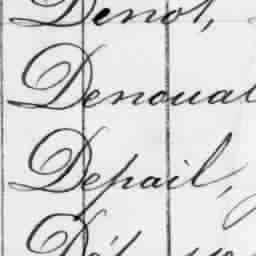 Denot,
Denoual
Depail,